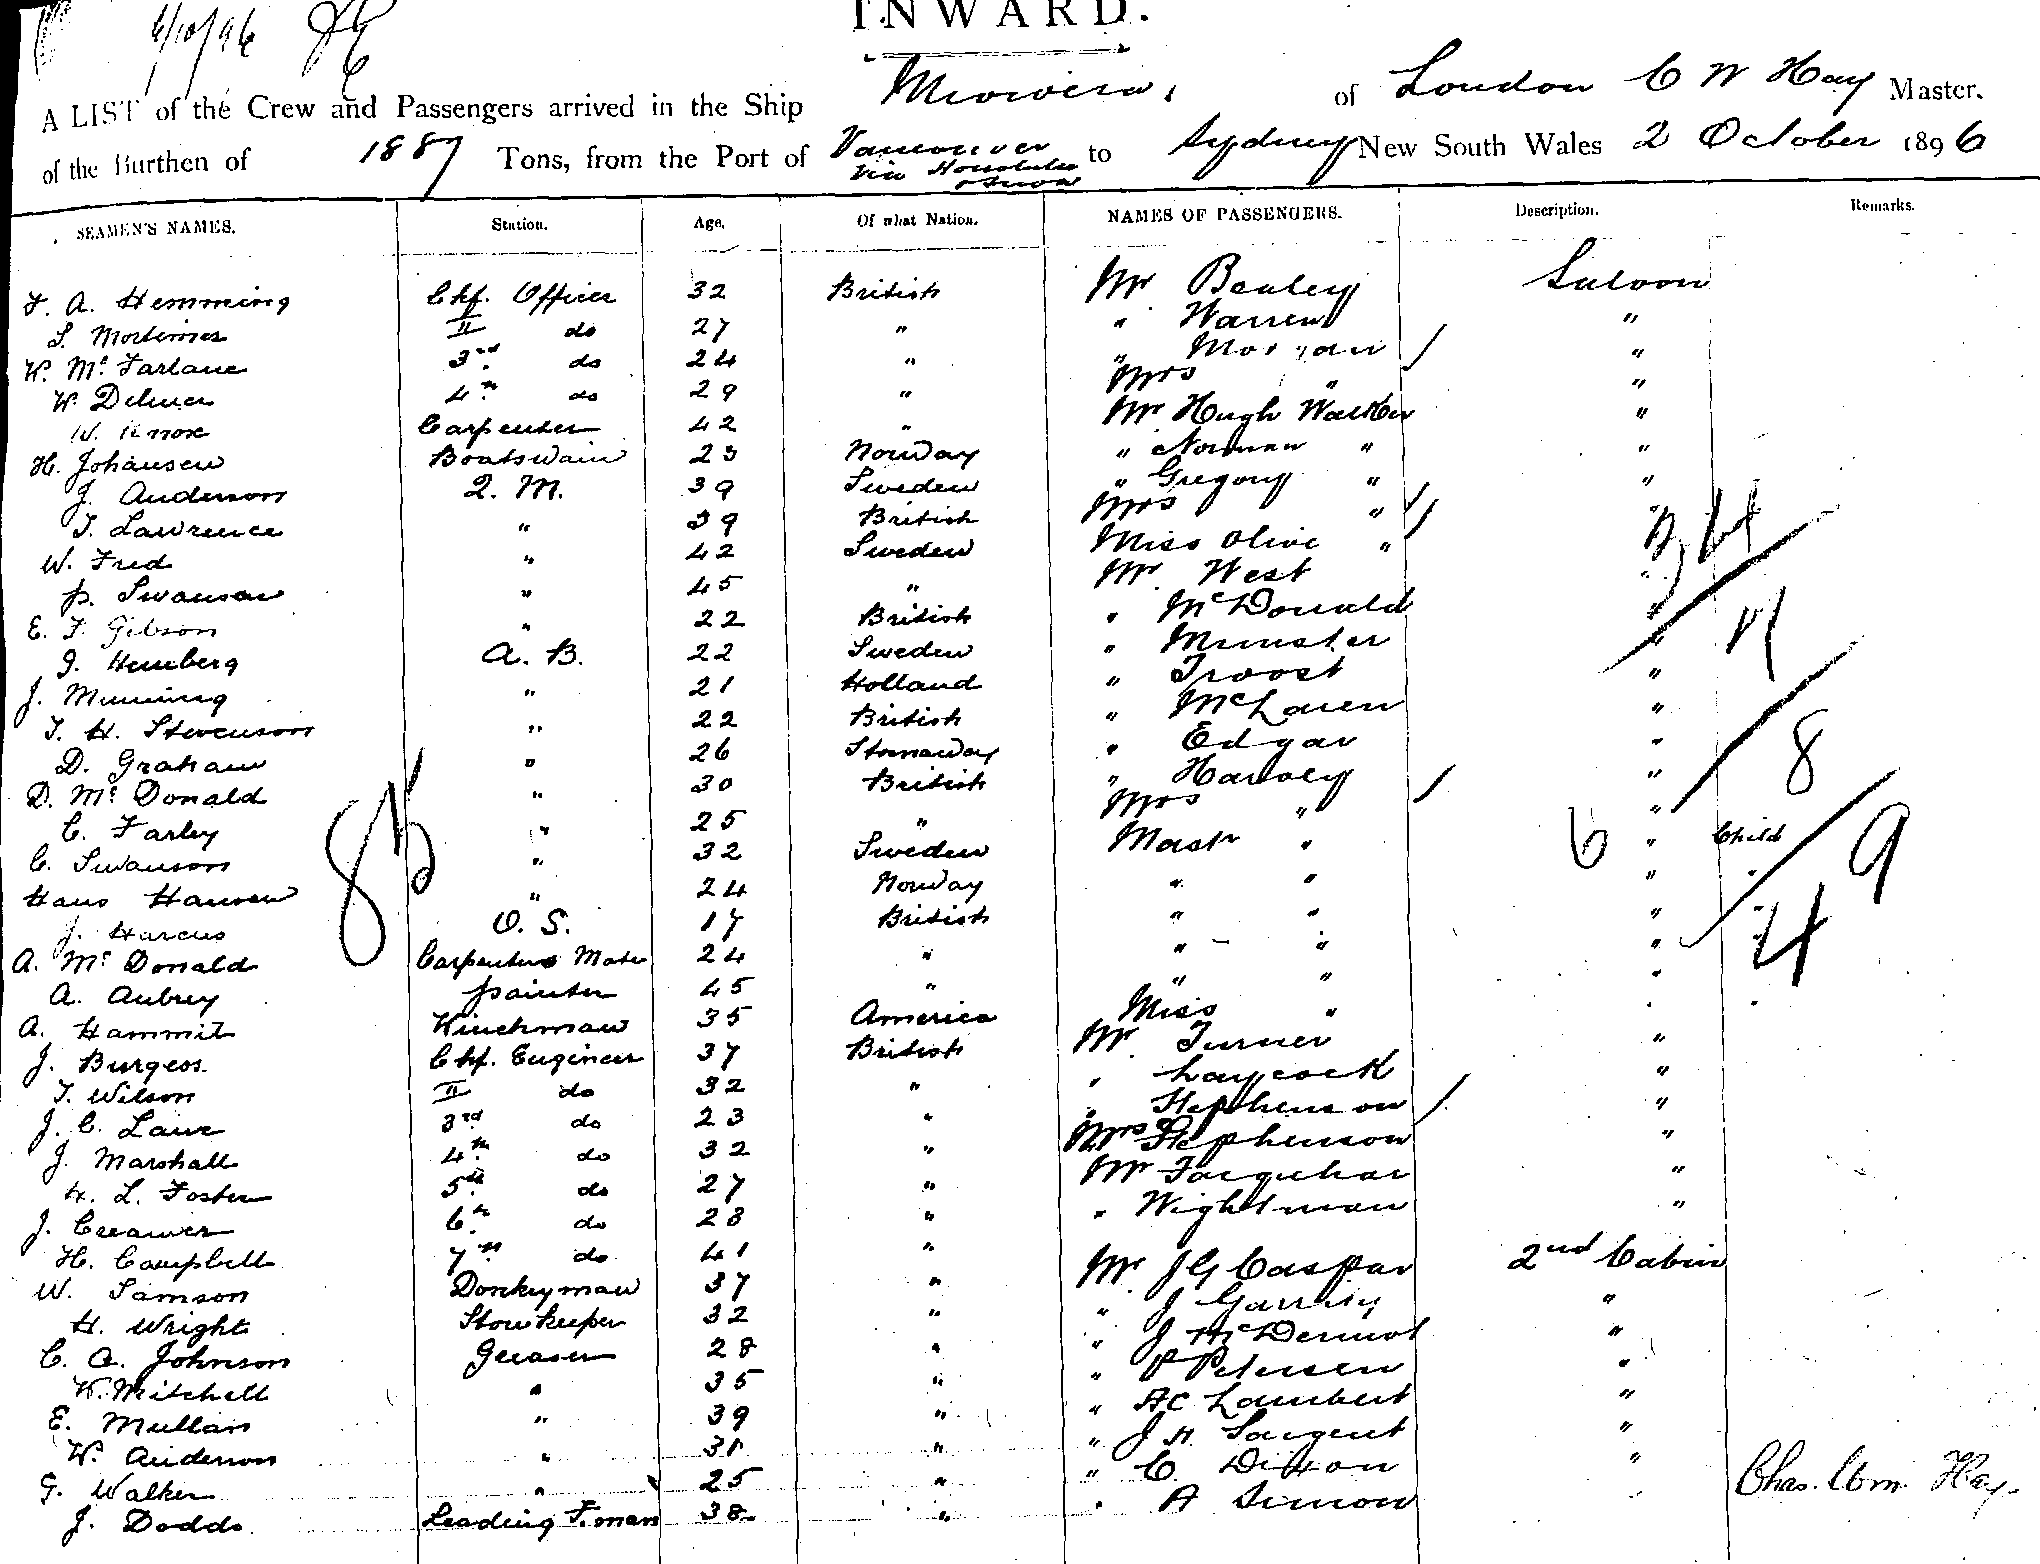 6/10/96
INWARD.
A LIST of the Crew and Passengers arrived in the Ship Miowera, of London C W Hay Master.
of the Burthen of 1887 Tons, from the Port of Vancouver via Honolulu & Suva to Sydney New South Wales 2 October 1896
SEAMEN'S NAMES. Station. Age. Of what Nation. NAMES OF PASSENGERS. Description. Remarks.
F. A. Hemming Chf. Officer 32 British Mr Bealey Saloon
S. Mortimer II do 27 " " Warren "
W. McFarlane 3rd do 24 " " Morgan "
W. Delmer 4th do 29 " Mrs " "
W. Knox Carpenter 42 " Mr Hugh Walker "
H. Johansen Boatswain 23 Norway " Norman " "
J. Anderson Q. M. 39 Sweden " Gregory " "
T. Lawrence " 39 British Mrs " "
W. Fred " 42 Sweden Miss Olive " "
P. Swanson " 45 " Mr West "
E. F. Gibson " 22 British " McDonald "
J. Hemberg A. B. 22 Sweden " Munster "
J. Munning " 21 Holland " Troost "
T. H. Stevenson " 22 British " McLaren "
D. Graham " 26 Stornaway " Edgar "
D. McDonald " 30 British " Harvey "
C. Farley " 25 " Mrs " "
C. Swanson " 32 Sweden Mastr " " Child
Hans Hansen " 24 Norway " " " "
J. Harcus O. S. 17 British " " " "
A. McDonald Carpenters Mate 24 " " " " "
A. Aubrey painter 45 " " " "
A. Hammit Winchman 35 America Miss " " "
J. Burgess Chf. Engineer 37 British Mr Turner "
T. Wilson II do 32 " " Laycock "
J. C. Laur 3rd do 23 " " Stephenson "
J. Marshall 4th do 32 " Mrs Stephenson "
H. L. Foster 5th do 27 " Mr Farquhar "
J. Creamer 6th do 28 " " Wightman "
H. Campbell 7th do 41 " Mr J G Caspar 2nd Cabin
W. Samson Donkeyman 37 " " J Garrity "
H. Wright Storekeeper 32 " " J McDermot "
C. A. Johnson Greaser 28 " " P Petersen "
W. Mitchell " 35 " " AC Lambert "
E. Mullan " 39 " " J H Sargent "
W. Anderson " 31 " " C Dixon "
G. Walker " 25 " " A Simon
J. Dodds Leading F.man 38 "
Chas. Wm. Hay
85
34
11
8
6
9
4